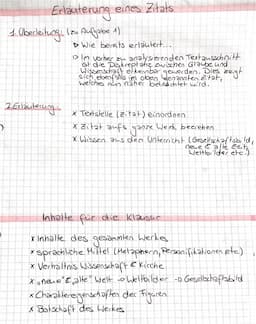 Erläuterung eines Zitats
1. Überleitung: (zu Aufgabe 1)
▷ Wie bereits erläutert...
▷ Im vorher zu analysierenden Textausschnitt
ist die Diskrepanz zwischen Glaube und
Wissenschaft erkennbar geworden. Dies zeigt
sich ebenfalls im oben genannten Zitat,
welches nun näher betrachtet wird.
2. Erläuterung:
x Textstelle (Zitat) einordnen
x Zitat aufs ganze Werk beziehen
x Wissen aus dem Unterricht (Gesellschaftsbild,
neue & alte Zeit,
Weltbilder etc.)
Inhalte für die Klausur
x Inhalte des gesamten Werkes
x sprachliche Mittel (Metaphern, Personifikationen etc.)
x Verhältnis Wissenschaft & Kirche
x „neue" & „alte" Welt → Weltbilder → Gesellschaftsbild
x Charaktereigenschaften der Figuren
x Botschaft des Werkes